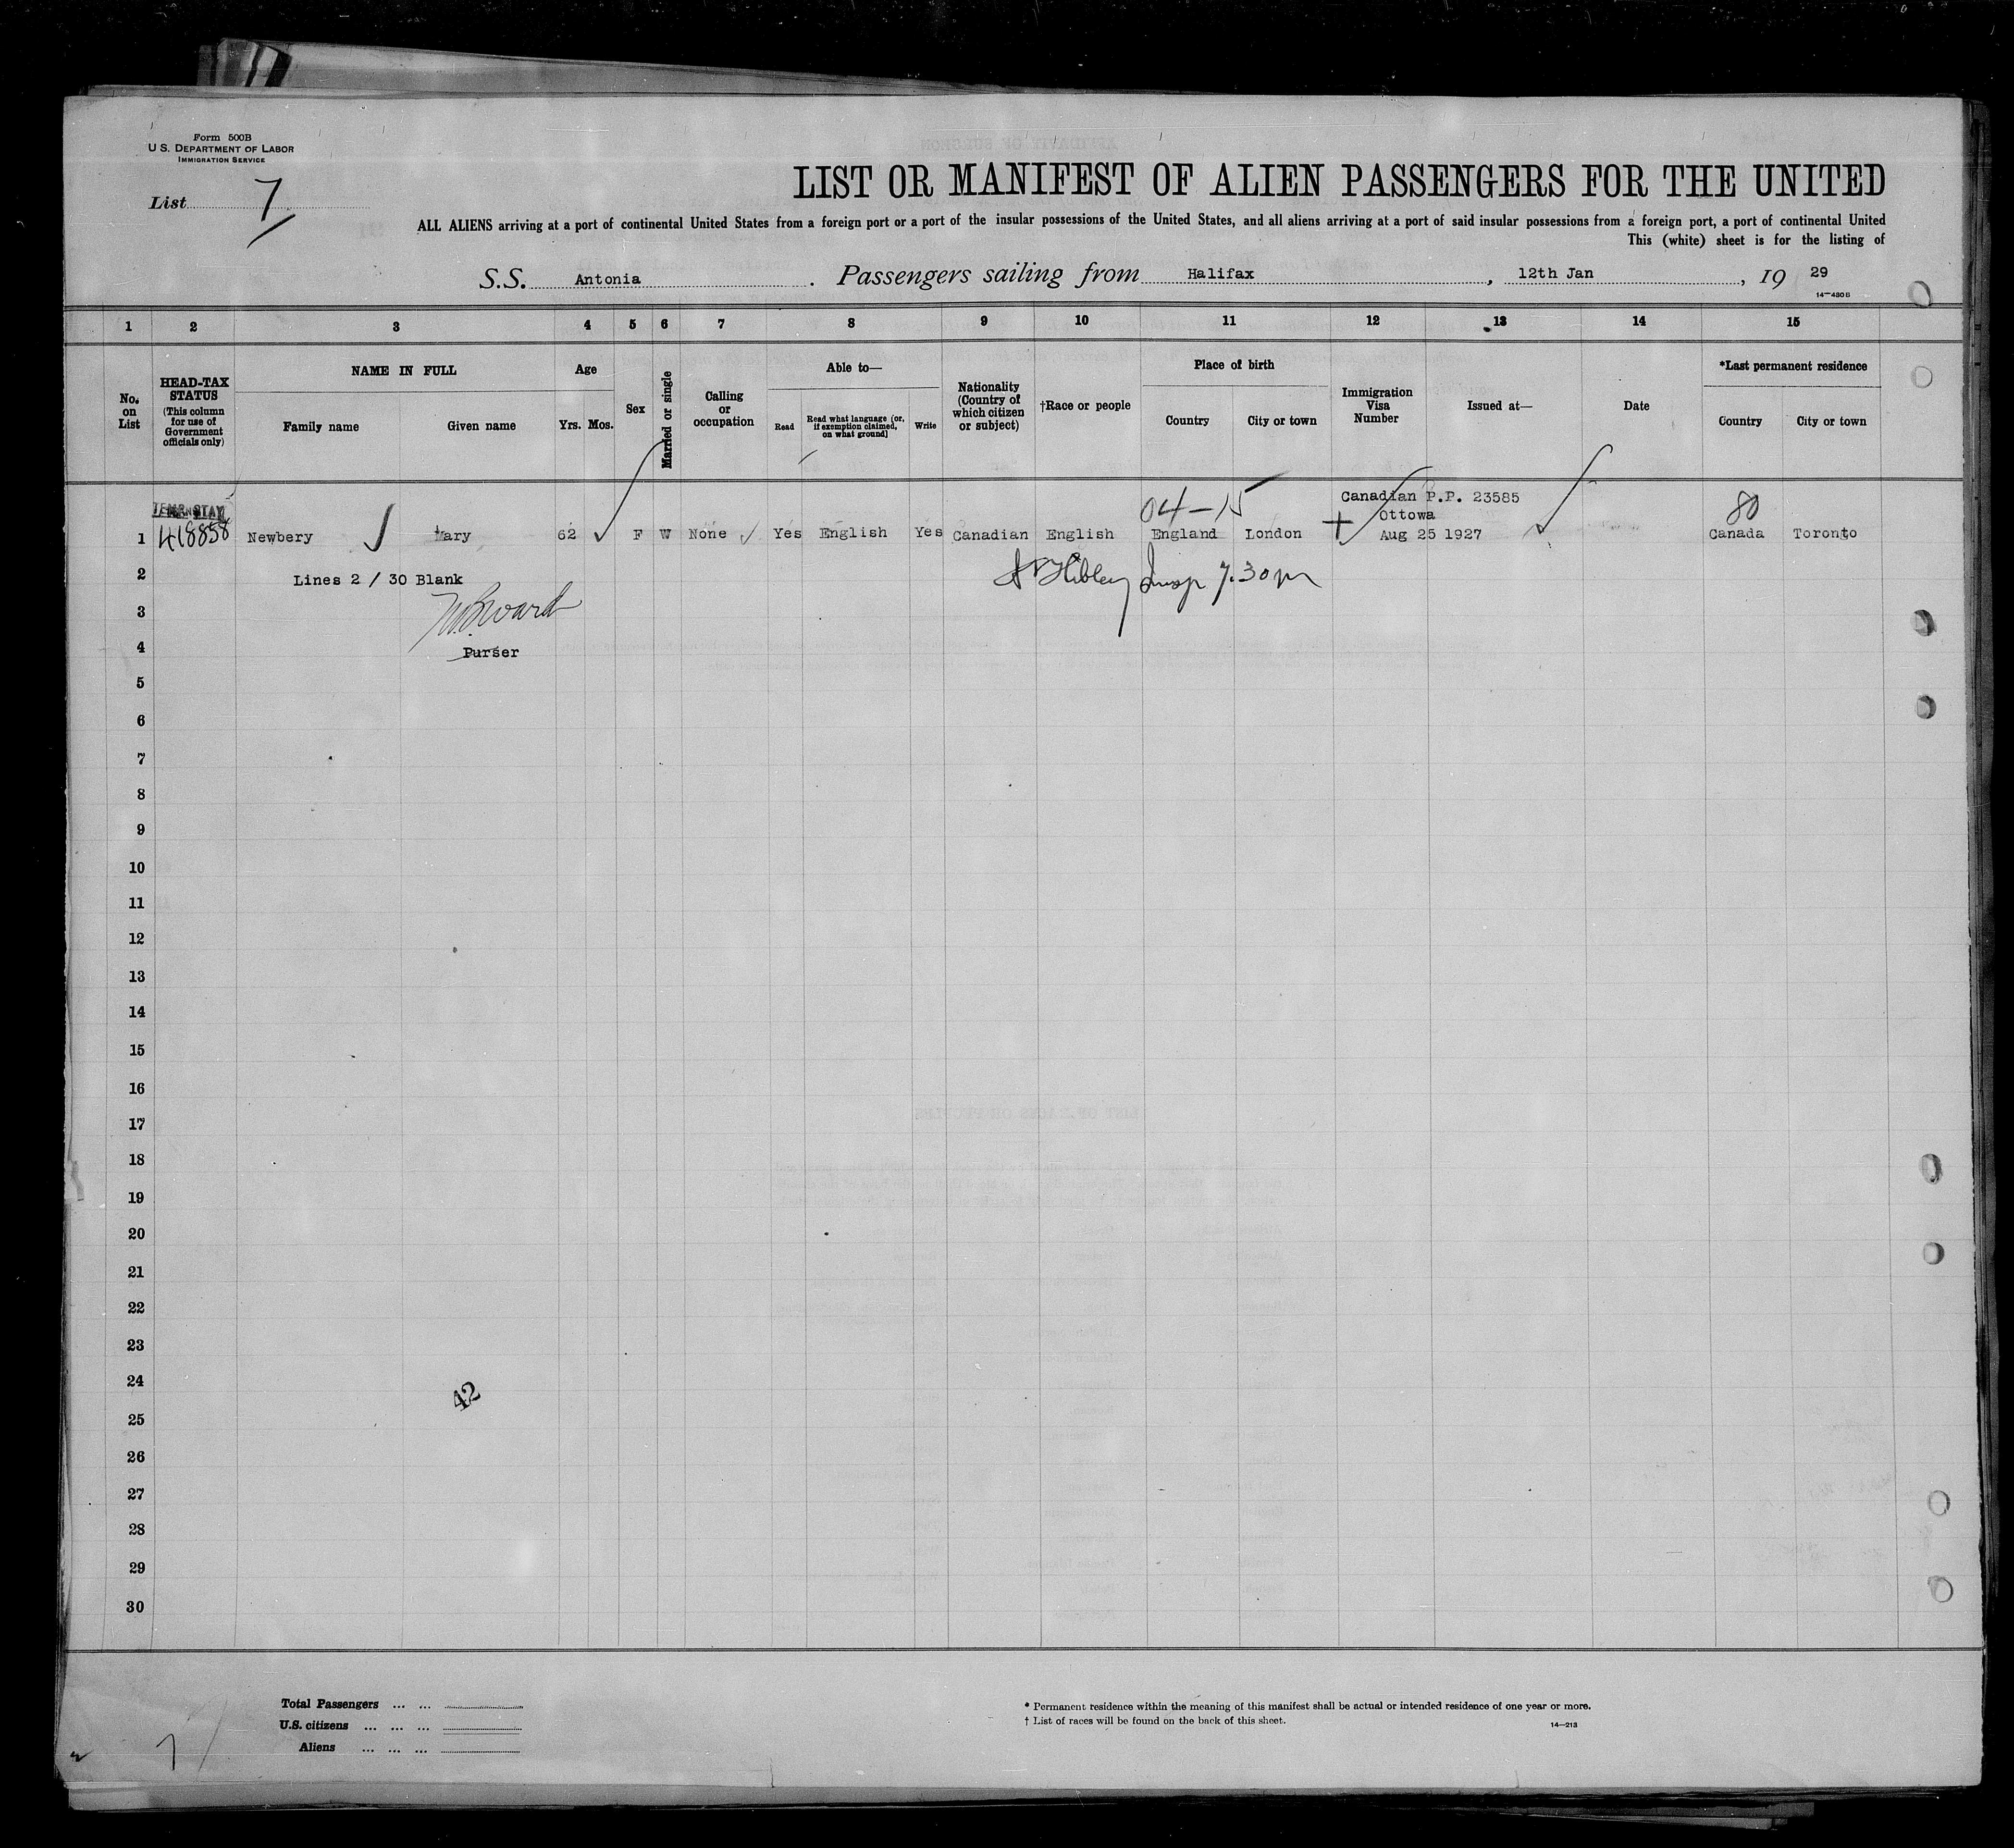 Form 500B
U. S. DEPARTMENT OF LABOR
IMMIGRATION SERVICE
List 7
LIST OR MANIFEST OF ALIEN PASSENGERS FOR THE UNITED
ALL ALIENS arriving at a port of continental United States from a foreign port or a port of the insular possessions of the United States, and all aliens arriving at a port of said insular possessions from a foreign port, a port of continental United
This (white) sheet is for the listing of
S.S. Antonia. Passengers sailing from Halifax, 12th Jan, 19 29
14—430 B
1 2 3 4 5 6 7 8 9 10 11 12 13 14 15
No. on List
HEAD-TAX STATUS
(This column for use of Government officials only)
NAME IN FULL
Family name
Given name
Age
Yrs. Mos.
Sex
Married or single
Calling or occupation
Able to—
Read
Read what language (or, if exemption claimed, on what ground)
Write
Nationality (Country of which citizen or subject)
†Race or people
Place of birth
Country
City or town
Immigration Visa Number
Issued at—
Date
*Last permanent residence
Country
City or town
04-15
Canadian P.P. 23585
80
Ottowa
1 418858 Newbery Mary 62 F W None Yes English Yes Canadian English England London Aug 25 1927 Canada Toronto
2 Lines 2 / 30 Blank
Insp 7.30 pm
3
4 Purser
5
6
7
8
9
10
11
12
13
14
15
16
17
18
19
20
21
22
23
24
42
25
26
27
28
29
30
Total Passengers ... ...
U.S. citizens ... ... ...
Aliens ... ... ...
* Permanent residence within the meaning of this manifest shall be actual or intended residence of one year or more.
† List of races will be found on the back of this sheet.
14—213